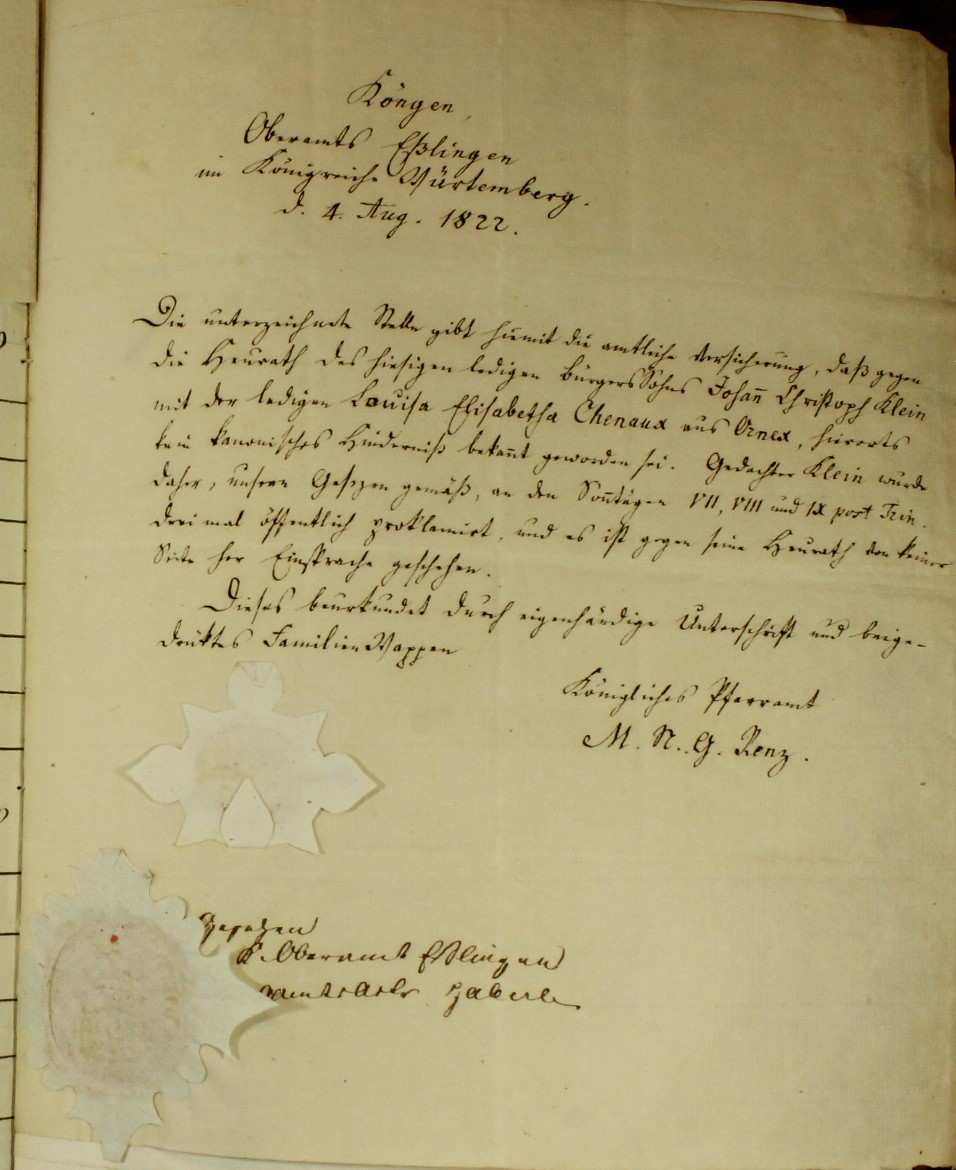 Köngen,
Oberamts Eßlingen
im Königreiche Würtemberg.
d. 4. Aug. 1822.
Die unterzeichnete Stelle gibt hiemit die amtliche Versicherung, daß gegen
die Heurath des hiesigen ledigen BürgersSohns Johañ Christoph Klein
mit der ledigen Louisa Elisabetha Chenaux aus Ornex, hierorts
kein kanonisches Hinderniß bekañt geworden sei. Gedachter Klein wurde
daher, unsern Gesezen gemäß, an den Soñtägen VII, VIII und IX post Trin.
drei mal öffentlich proklamirt, und es ist gegen seine Heurath von keiner
Seite her Einsprache geschehen.
Dieses beurkundet durch eigenhändige Unterschrift und beige-
druktes FamilienWappen
Königliches Pfarramt
M. N. G. Renz.
Gesehen
K. Oberamt Eßlingen